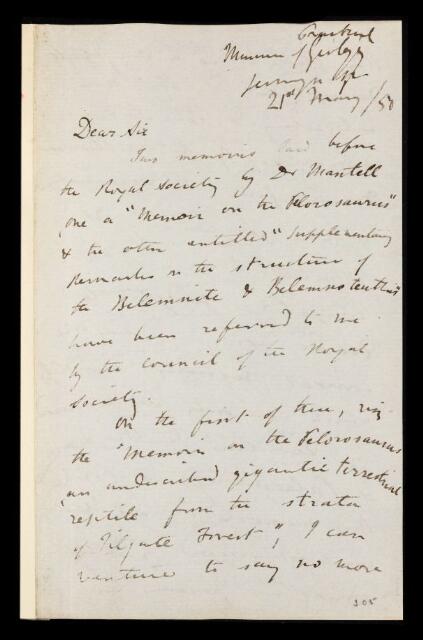 Museum of Geology
Jermyn St
21st May /50
Dear Sir
Two memoirs laid before
the Royal Society by Dr Mantell
one a "Memoir on the Pelorosaurus"
& the other entitled "Supplementary
Remarks on the structure of
the Belemnite & Belemnoteuthis"
have been referred to me
by the council of the Royal
Society.
On the first of these, viz
the "Memoir on the Pelorosaurus
(an undescribed gigantic terrestrial
reptile from the strata
of Tilgate Forest", I can
venture to say no more
305